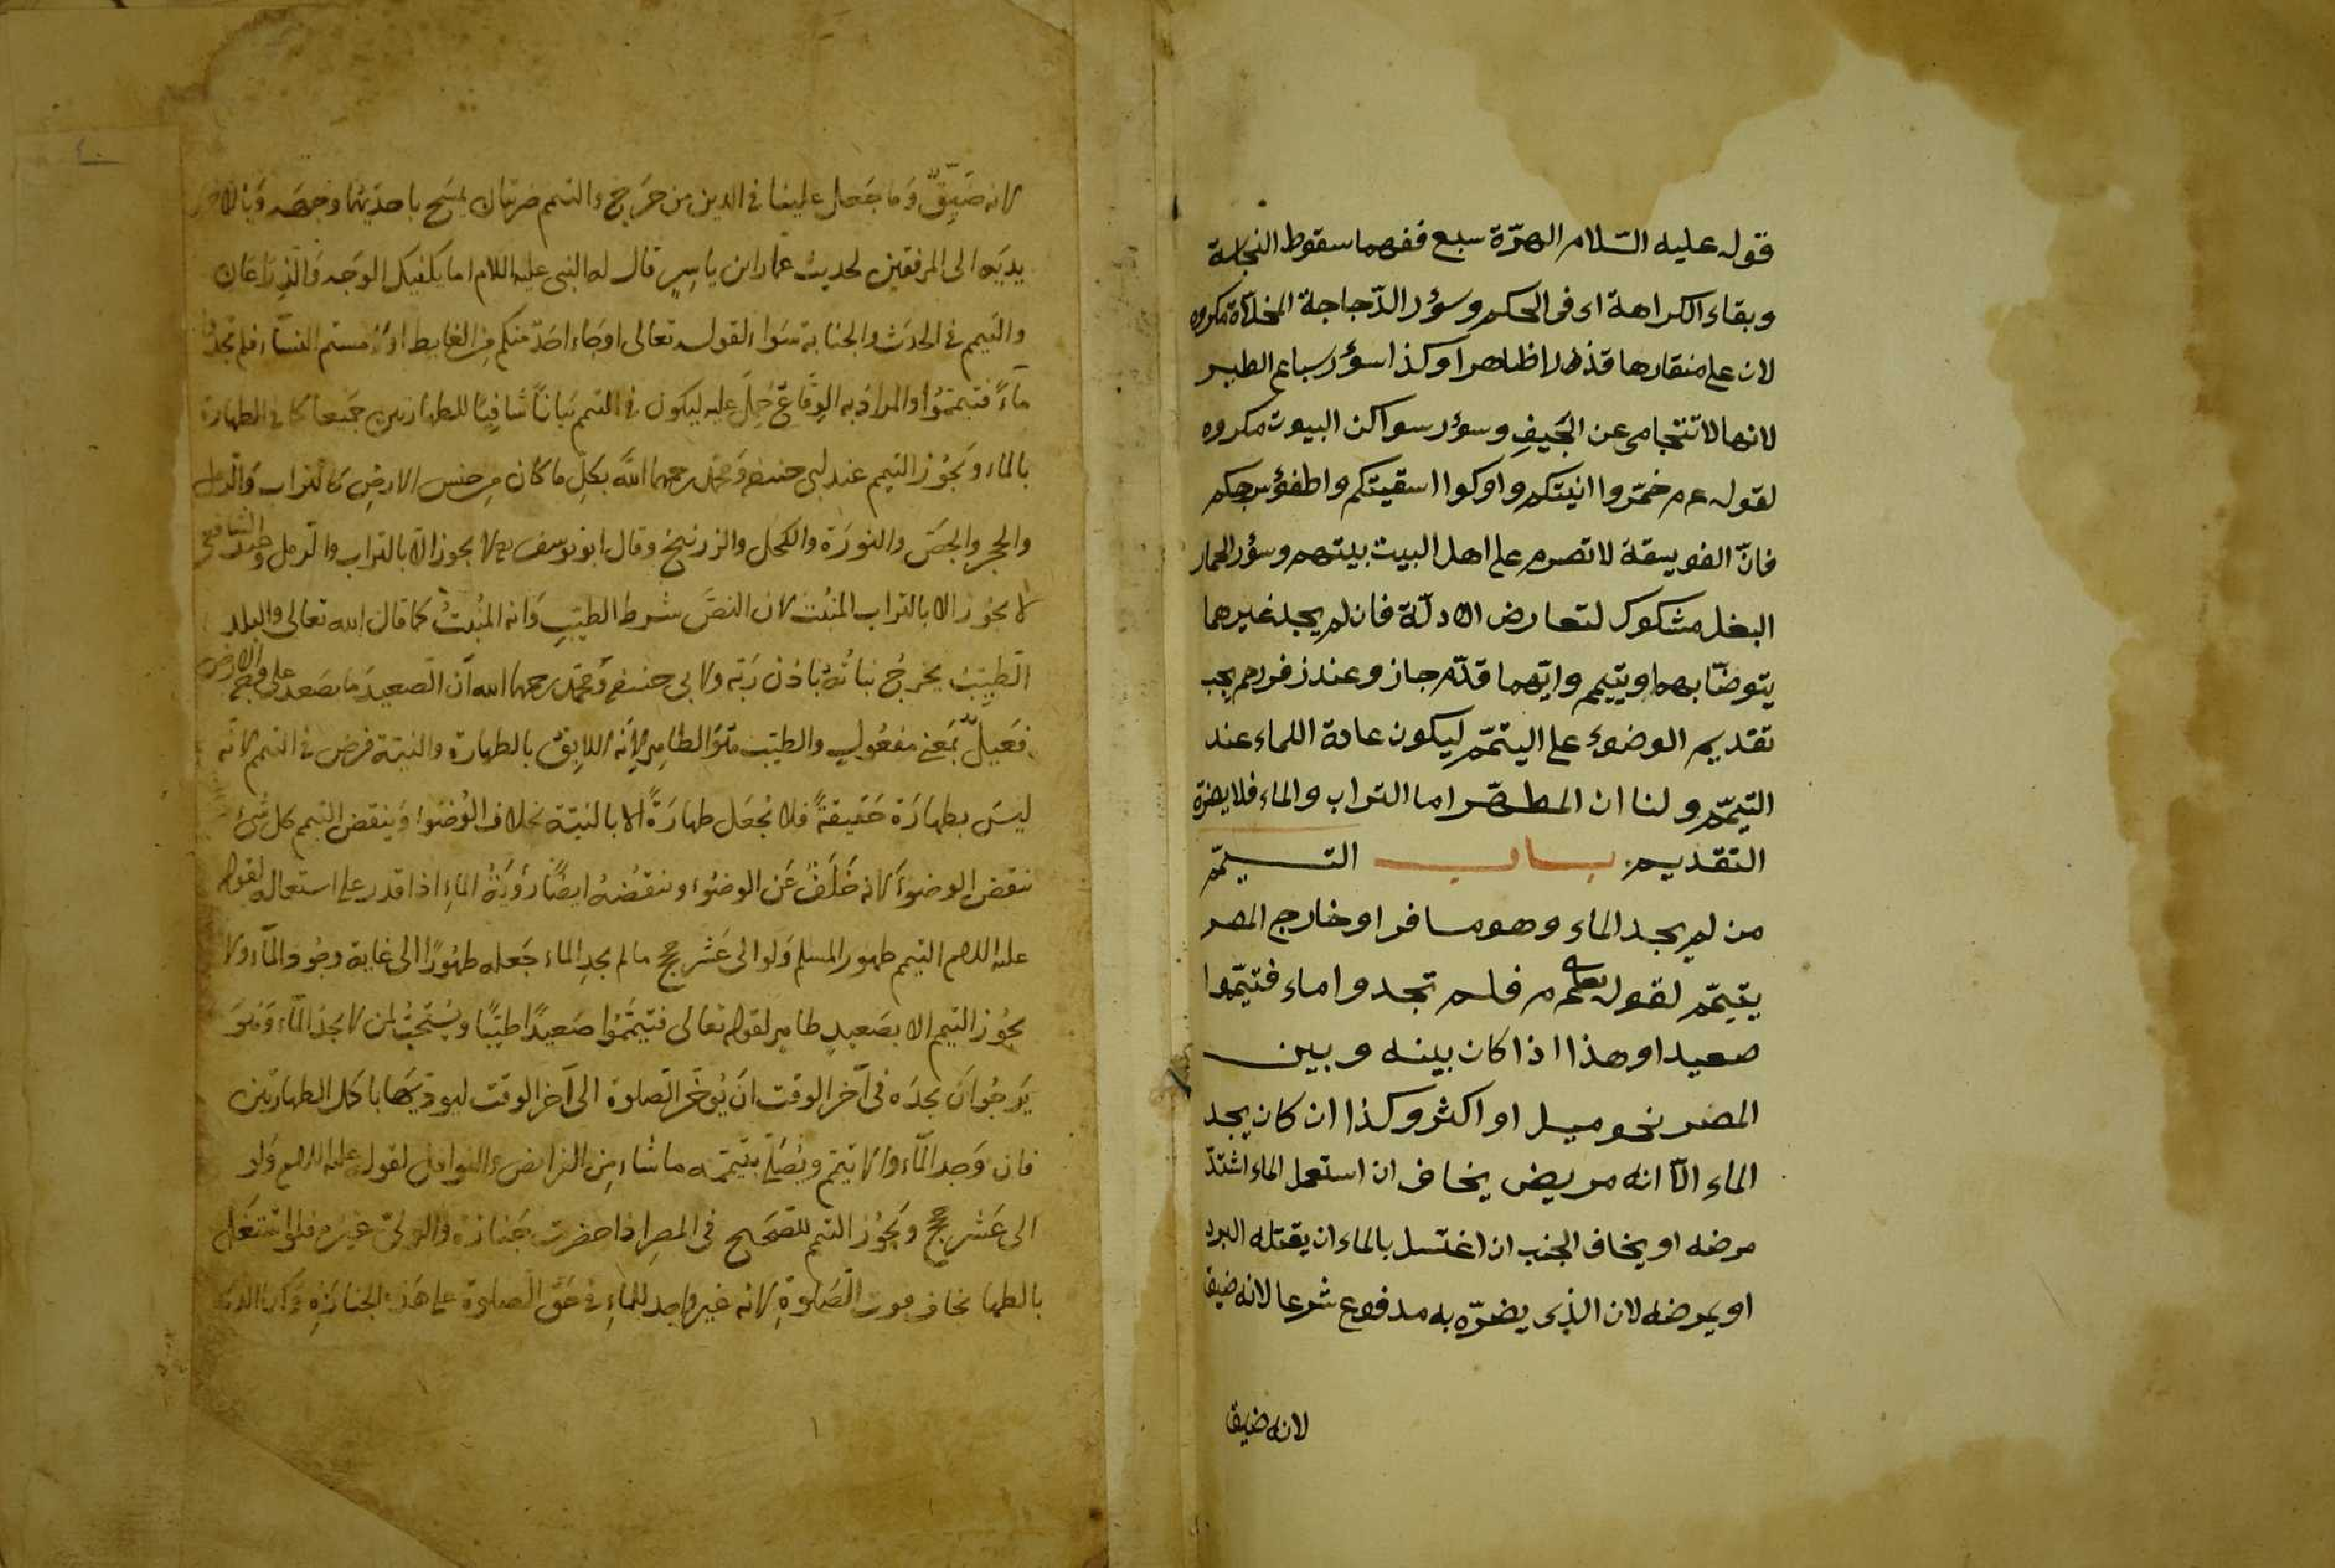 قوله عليه السّلام الهرّة سبع ففهما سقوط النجاسة
وبقاء الكراهة اى فى الحكم وسؤر الدّجاجة المخلاّة مكروه
لان على منقارها قذرا ظاهرا وكذا سؤر سباع الطير
لانها لا تتحامى عن الجَيفِ وسؤر سواكن البيوت مكروه
لقوله عم خمّروا انيتكم واوكوا اسقيتكم واطفؤا سرجكم
فانّ الفويسقة لا تضرم على اهل البيت بيتهم وسؤر الحمار
البغل مشكوك لتعارض الادلّة فان لم يجد غيرهما
يتوضّأ بهما ويتيمم وايّهما قدّم جاز وعند زفر رحم يجب
تقديم الوضوء على التيمّم ليكون عادة اللماء عند
التيمّم ولنا ان المطهّر اما التراب والماء فلا يضرّه
التقديم باب التيمّم
من لم يجد الماء وهو مسافر او خارج المصر
يتيمّم لقوله تعلى فلم تجدوا ماء فتيمّموا
صعيدا وهذا اذا كان بينه وبين
المصر نحو ميل او اكثر وكذا ان كان يجد
الماء الّا انه مريض يخاف ان استعمل الماء اشتدّ
مرضه او يخاف الجنب ان اغتسل بالماء ان يقتله البرد
او يمرضه لان الذى يضرّه به مدفوع شرعا لانه ضيقا
لانه ضيقا
لانه ضَيِّقٌ وَما جَعَل علينا فى الدين من حَرَجٍ والتيمم ضربتان يمسَح باحدَيهُما وجهَه وَبالاخرى
يديَه الى المرفقين لحديث عمّار ابن ياسِرٍ قال له النبى عليه اللام اما يكفيك الوَجه وَالذِرَاعَانِ
والتيمم فى الحدَث والجنابة سَواء لقوله تعالى اوجَاء احَدٌ منكم مِن الغايط اوْ لامستم النسَاء فلم تجدُوا
مآءً فتيمّمُوا والمرادُ به الوِقَاعُ حُمِلَ عليه ليكون فى التيمم بَيانًا شَافِيًا للطهارتين جميعا كما فى الطهارة
بالماء وَيجُوز التيمم عند ابى حنيفه وَمحمّد رحمهما اللّه بكلِ ما كانَ مِن جنس الارضِ كالتراب وَالرمل
والحجر والجصّ والنورَة والكحل والزرنيخ وقال ابو يوسف رح لا يجوز الّا بالتراب والرمل وعند الشافعى
لا يجُوز الا بالتراب المنبُت لان النصَّ شرط الطيّبِ وَانه المنبُتُ كما قال الله تعالى والبلد
الطّيّبُ يخرجُ نباتُهُ باذن رَبّه ولابى حنيفه وَمحمّد رحمهما الله انّ الصعيدَ ما صَعد على وَجه الارض
فَعيلٌ بمَعنى مفعُول والطيّب هوَ الطاهِر لِاَنه اللايق بالطهارة والنيّة فرض فى التيمم لانّه
ليسَ بطهارَة حَقيقةً فلا يُجعَل طهارَةً الا بالنيّة بخلاف الوُضوء وَينقض التيمم كل شئ
ينقض الوضوءَ لانه خَلَفٌ عَن الوضوء وينقضُهُ ايضًا رؤيَةُ الماءِ اذا قدر على استعماله لقوله
عليه اللام التيمم طهور المسلم وَلوالى عَشر حجج ما لم يجدِ الماء جَعله طهُورًا الى غاية وجُود الماء ولا
يجوز التيمم الا بصَعيدٍ طاهِر لقوله تعالى فتيمّمُوا صَعيدًا طيّبًا ويُستحَبُّ لمن لا يجدُ الماء وَهوَ
يَرجُوا انَ يجدَه فى آخر الوقت انَ يُؤخّر الصلوة الى آخر الوقت ليؤدّيَها باكمل الطهارتين
فان وَجد الماء والا تيمّم ويُصَلّى بتيمّمه ما شاء مِن الفرايض والنوافل لقوله عليه اللام وَلو
الى عَشر حججٍ وَيجُوز التيمم للصّحَيح فى المصِر اذا حضرت جنازة والولىّ غيره فلو اشتغَل
بالطهارة يخاف فوت الصّلوةِ لانه غير واجد للماءِ فى حَقِّ الصلوة على هذه الجنازةِ وكان